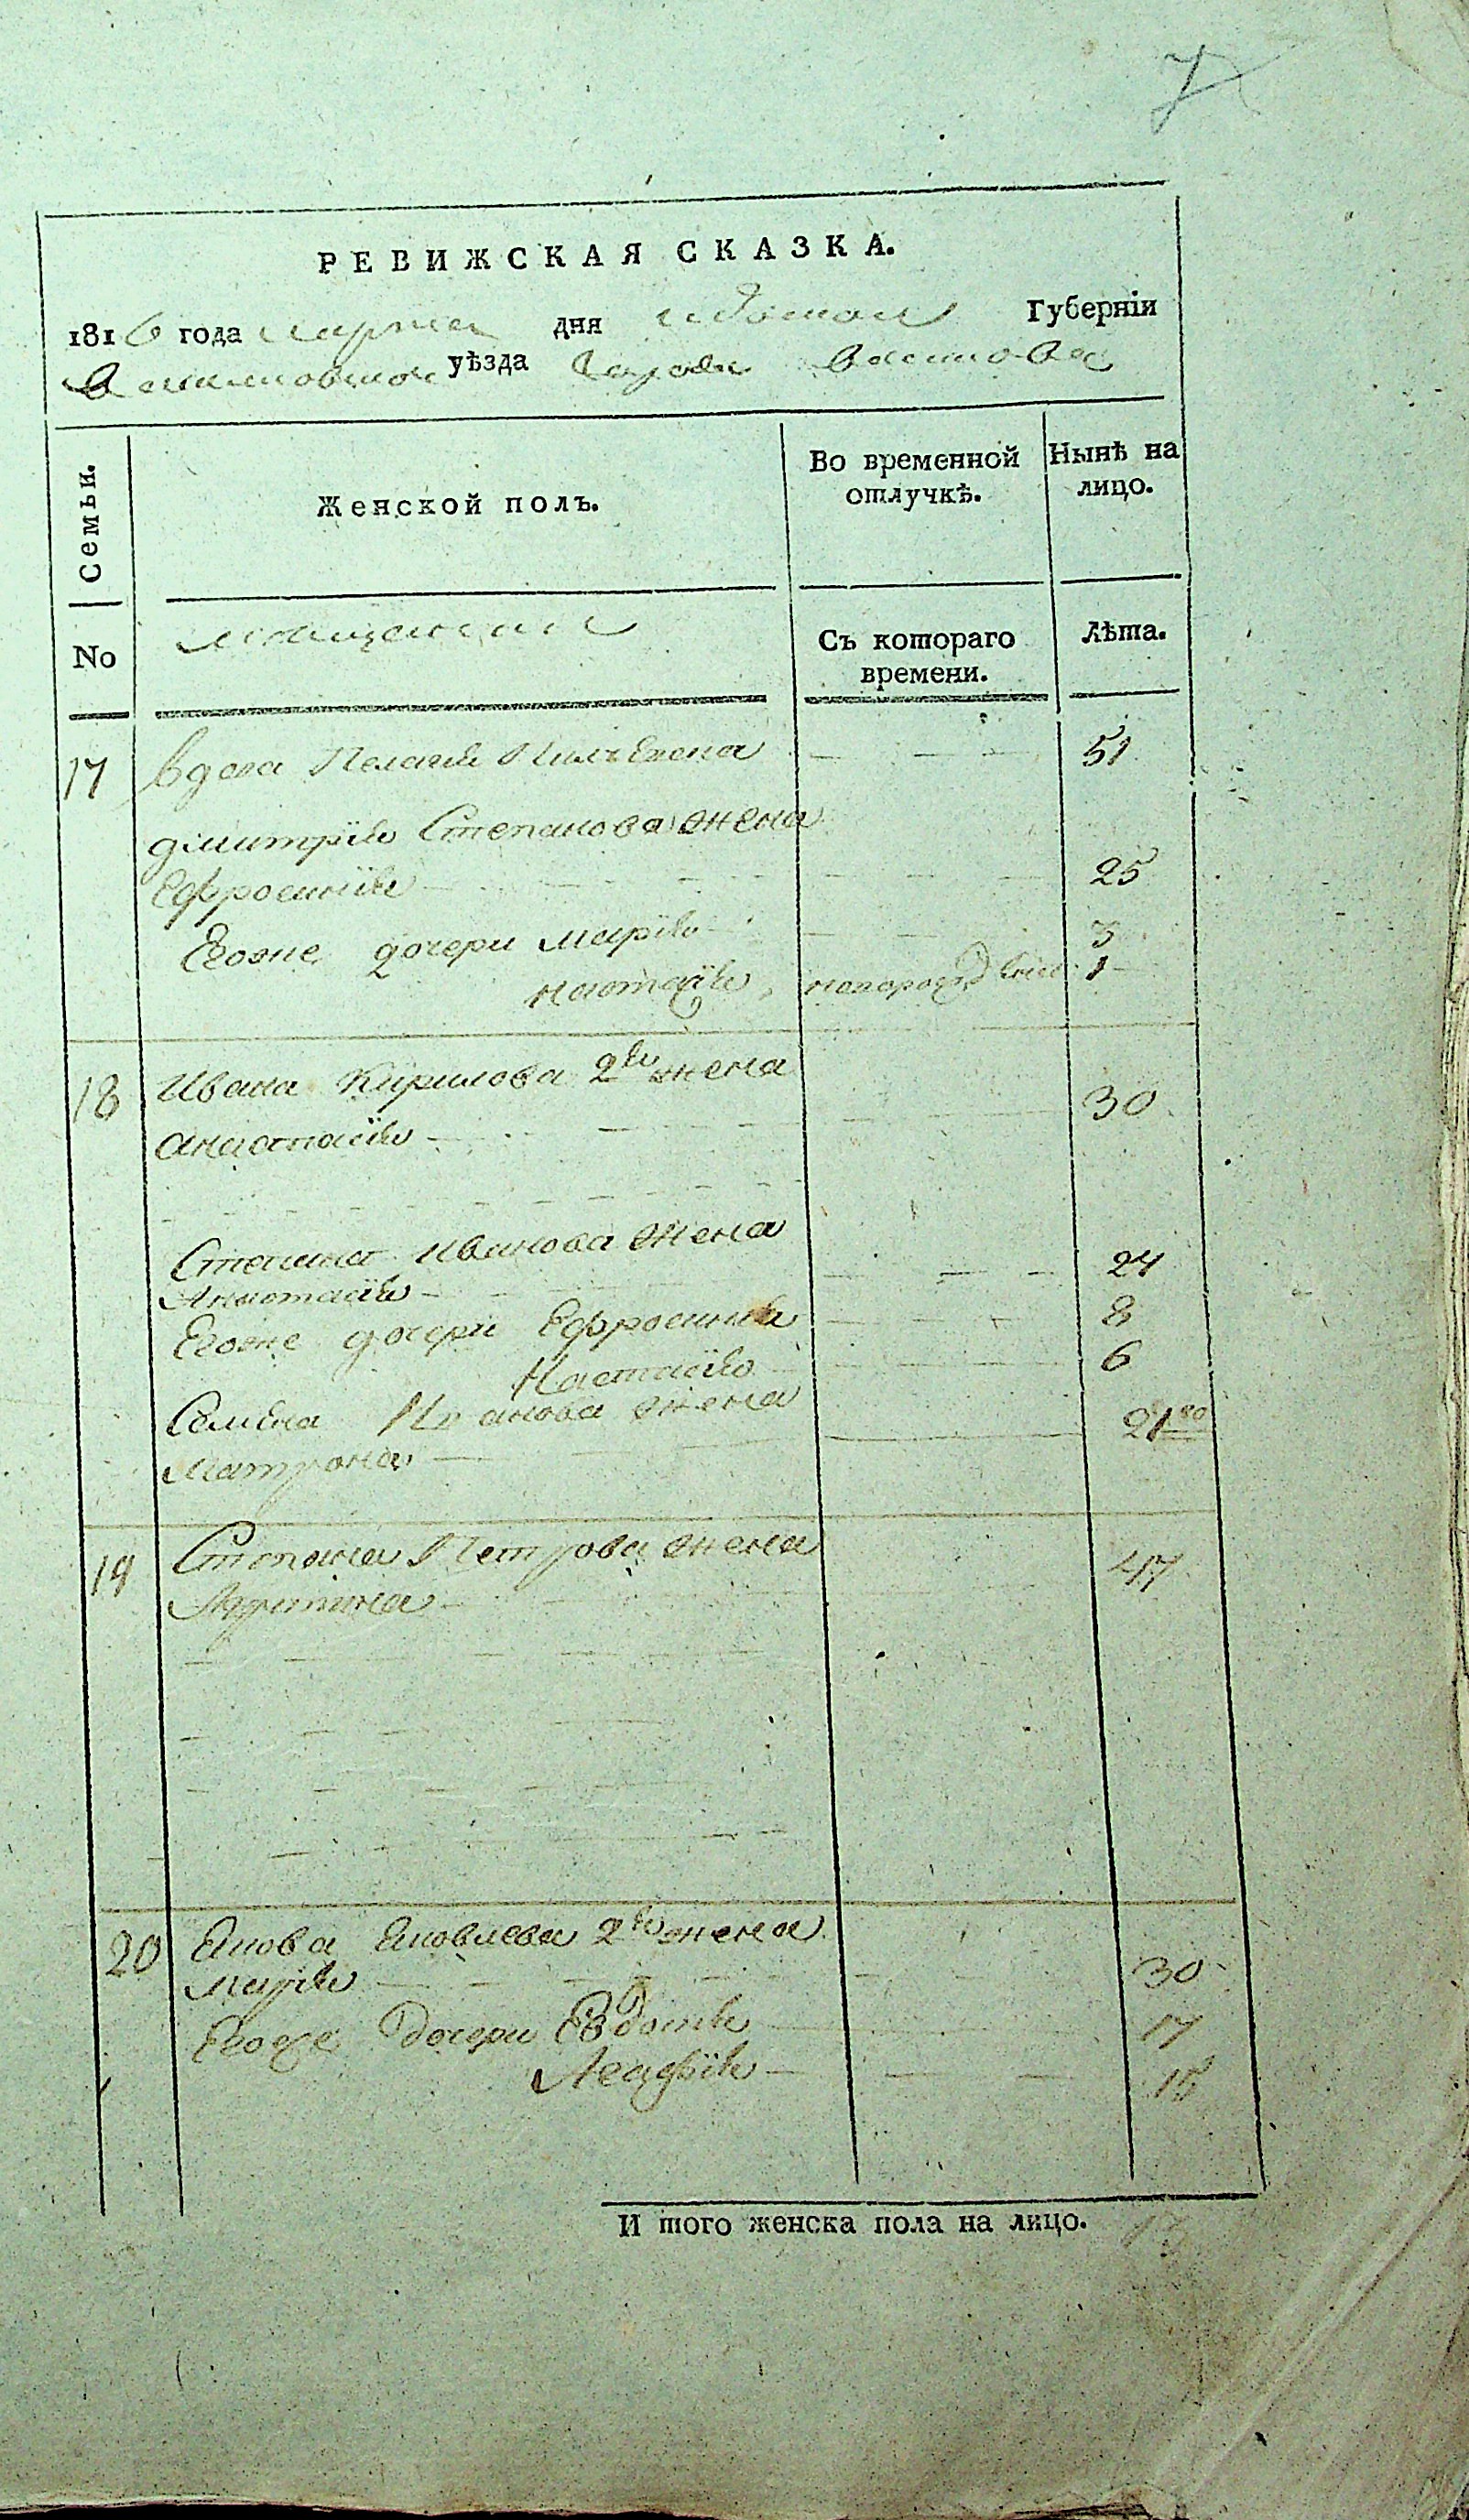 7
РЕВИЖСКАЯ СКАЗКА.
1816 года марта дня Губерніи
уѣзда города
Семьи.
Женской полъ.
Во временной отлучкѣ.
Нынѣ на лицо.
No
мещански
Съ котораго времени.
Лѣта.
17 вдова Пелагея 51
дмитрія Степанова жена
Ефросинія 25
Егоже дочери марія 3
настасія, новорожд 1
18 Ивана Кирилова 2я жена
анастасія 30
Степана Иванова жена
Анастасія 24
Егоже дочери Ефросинія 8
Настасія 6
Семена Иванова жена
Матрона 21
19 Степана Петрова жена
47
20 Якова Яковлева 2я жена
марія 30
Егоже дочери Евдокія 17
Агафія 15
И того женска пола на лицо. 13